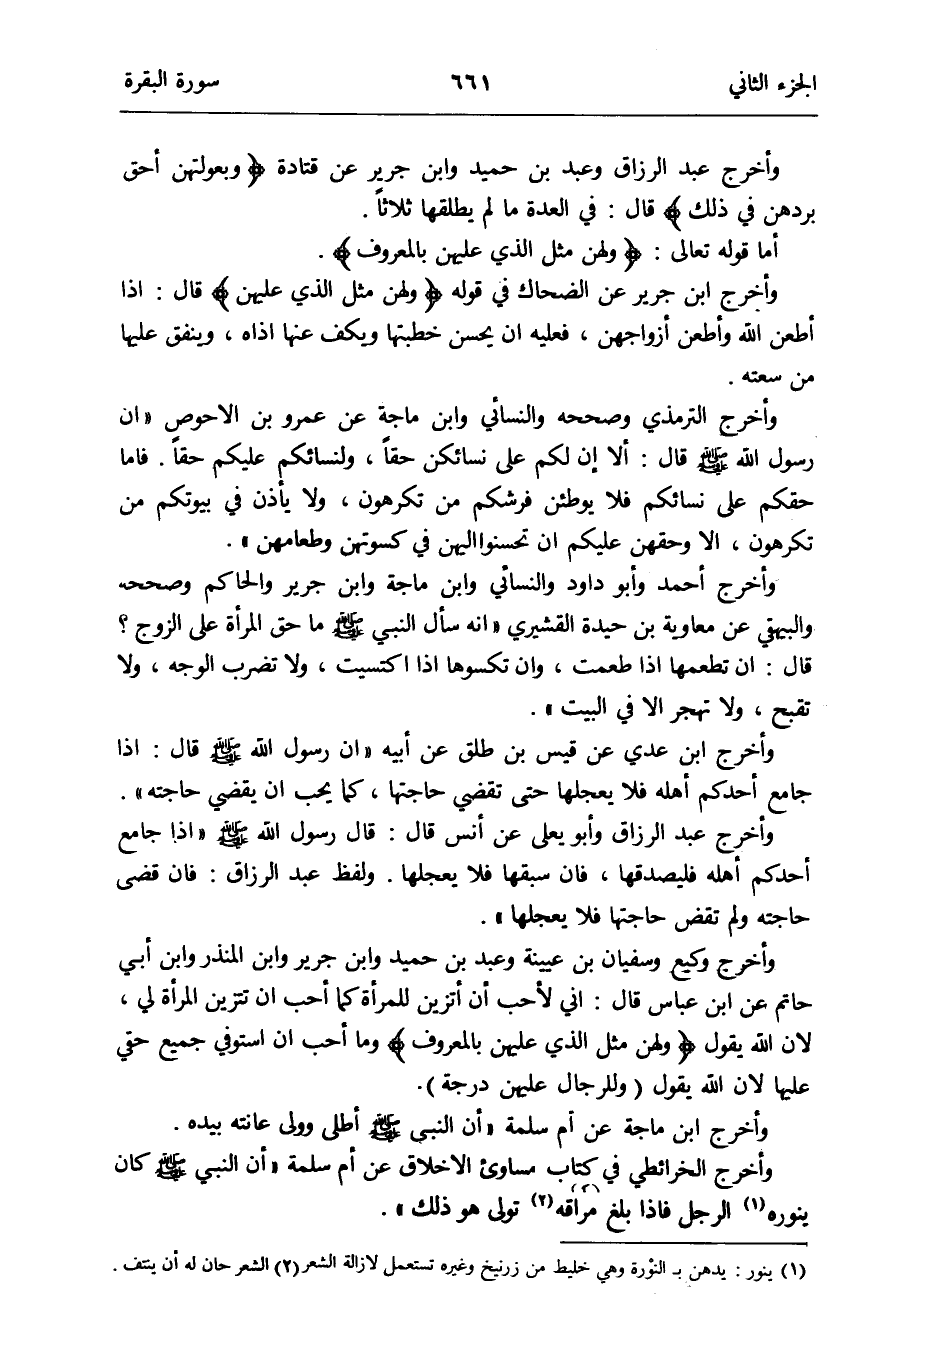 الجزء الثاني ٦٦١ سورة البقرة
وأخرج عبد الرزاق وعبد بن حميد وابن جرير عن قتادة ﴿ وبعولتهن أحق
بردهن في ذلك ﴾ قال : في العدة ما لم يطلقها ثلاثاً .
أما قوله تعالى : ﴿ ولهن مثل الذي عليهن بالمعروف ﴾ .
وأخرج ابن جرير عن الضحاك في قوله ﴿ ولهن مثل الذي عليهن ﴾ قال : اذا
أطعن الله وأطعن أزواجهن ، فعليه ان يحسن خطبتها ويكف عنها اذاه ، وينفق عليها
من سعته .
وأخرج الترمذي وصححه والنسائي وابن ماجة عن عمرو بن الاحوص « ان
رسول الله ﷺ قال : ألا إن لكم على نسائكن حقاً ، ولنسائكم عليكم حقاً . فاما
حقكم على نسائكم فلا يوطئن فرشكم من تكرهون ، ولا يأذن في بيوتكم من
تكرهون ، الا وحقهن عليكم ان تحسنوا اليهن في كسوتهن وطعامهن » .
وأخرج أحمد وأبو داود والنسائي وابن ماجة وابن جرير والحاكم وصححه
والبيهقي عن معاوية بن حيدة القشيري « انه سأل النبي ﷺ ما حق المرأة على الزوج ؟
قال : ان تطعمها اذا طعمت ، وان تكسوها اذا اكتسيت ، ولا تضرب الوجه ، ولا
تقبح ، ولا تهجر الا في البيت » .
وأخرج ابن عدي عن قيس بن طلق عن أبيه « ان رسول الله ﷺ قال : اذا
جامع أحدكم أهله فلا يعجلها حتى تقضي حاجتها ، كما يحب ان يقضي حاجته » .
وأخرج عبد الرزاق وأبو يعلى عن أنس قال : قال رسول الله ﷺ « اذا جامع
أحدكم أهله فليصدقها ، فان سبقها فلا يعجلها . ولفظ عبد الرزاق : فان قضى
حاجته ولم تقض حاجتها فلا يعجلها » .
وأخرج وكيع وسفيان بن عيينة وعبد بن حميد وابن جرير وابن المنذر وابن أبي
حاتم عن ابن عباس قال : اني لأحب أن أتزين للمرأة كما أحب ان تتزين المرأة لي ،
لان الله يقول ﴿ ولهن مثل الذي عليهن بالمعروف ﴾ وما أحب ان استوفي جميع حقي
عليها لان الله يقول ( وللرجال عليهن درجة ) .
وأخرج ابن ماجة عن أم سلمة « أن النبي ﷺ أطلى وولى عانته بيده .
وأخرج الخرائطي في كتاب مساوئ الاخلاق عن أم سلمة « أن النبي ﷺ كان
ينوره (١) الرجل فاذا بلغ مراقه (٢) تولى هو ذلك » .
(١) ينور : يدهن بـ النوْرة وهي خليط من زرنيخ وغيره تستعمل لازالة الشعر (٢) الشعر حان له أن ينتف .